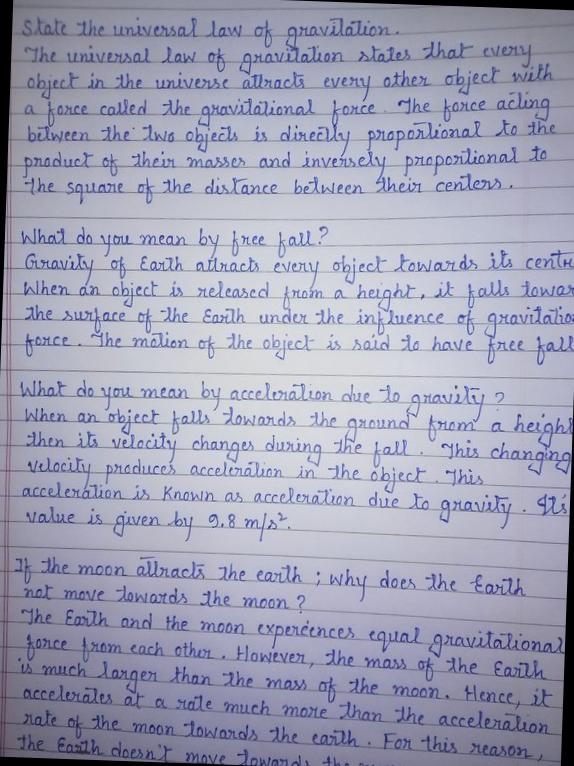 State the universal law of gravitation.
The universal law of gravitation states that every
object in the universe attracts every other object with
a force called the gravitational force. The force acting
between the two objects is directly proportional to the
product of their masses and inversely proportional to
the square of the distance between their centers.
What do you mean by free fall?
Gravity of Earth attracts every object towards its centre
When an object is released from a height, it falls towar
the surface of the Earth under the influence of gravitatio
force. The motion of the object is said to have free fall
What do you mean by acceleration due to gravity?
When an object falls towards the ground from a height
then its velocity changes during the fall. This changing
velocity produces acceleration in the object. This
acceleration is Known as acceleration due to gravity. Its
value is given by 9.8 m/s².
If the moon attracts the earth; why does the Earth
not move towards the moon?
The Earth and the moon experiences equal gravitational
force from each other. However, the mass of the Earth
is much larger than the mass of the moon. Hence, it
accelerates at a rate much more than the acceleration
rate of the moon towards the earth. For this reason,
the Earth doesn't move towards the